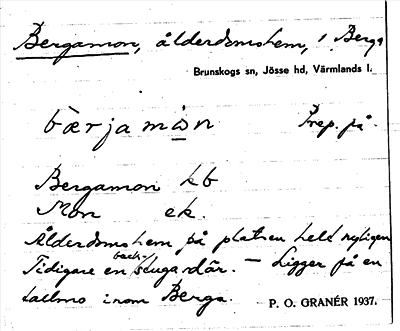 Bergamon, ålderdomshem, i Berga
Brunskogs sn, Jösse hd, Värmlands l.
bærjamòn Prep. på.
Bergamon kb
Mon ek.
Ålderdomshem på platsen helt nyligen
Tidigare en back-stuga där. — Ligger på en
tallmo inom Berga.
P. O. GRANÉR 1937.